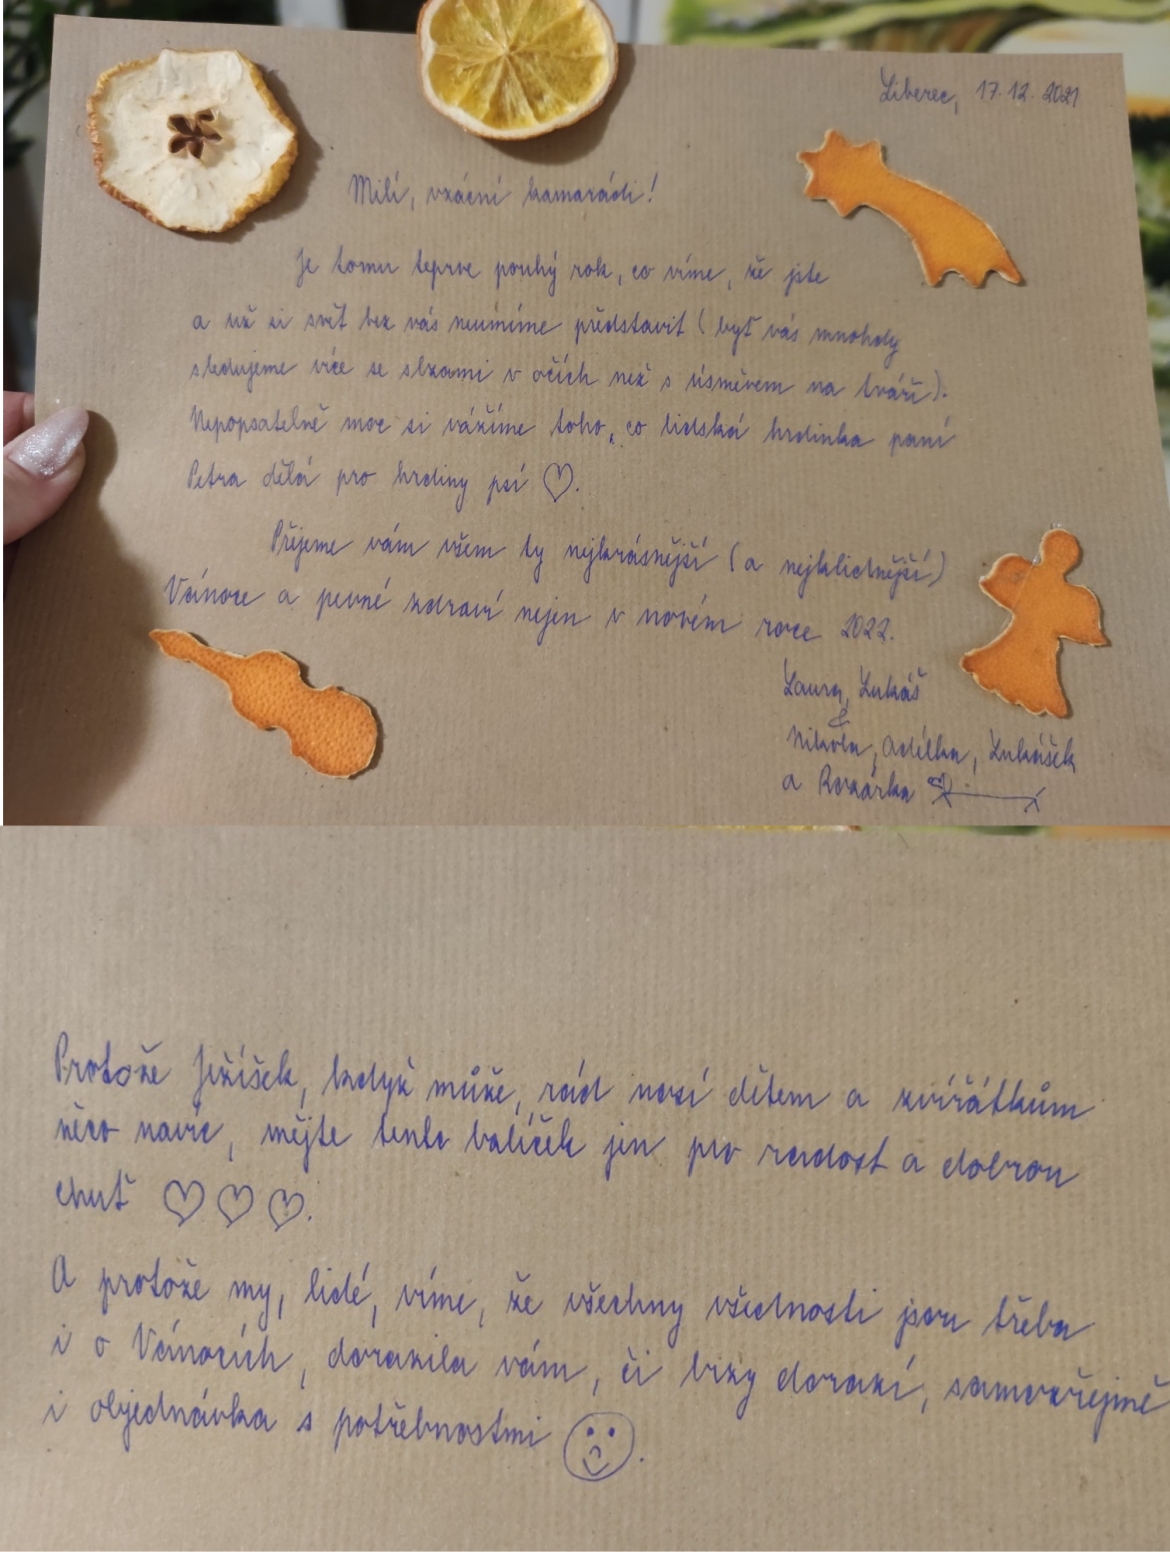 Liberec, 17.12.2021
Milí, vzácní kamarádi!
Je tomu teprve pouhý rok, co víme, že jste
a už si svět bez vás neumíme představit (byť vás mnohdy
sledujeme více se slzami v očích než s úsměvem na tváři).
Nepopsatelně moc si vážíme toho, co lidská hrdinka paní
Petra dělá pro hrdiny psí ♡.
Přejeme vám všem ty nejkrásnější (a nejklidnější)
Vánoce a pevné zdraví nejen v novém roce 2022.
Laura, Lukáš
&
Nikola, Adélka, Lukášek
a Rozárka
Protože Ježíšek, když může, rád nosí dětem a zvířátkům
něco navíc, mějte tento balíček jen pro radost a dobrou
chuť ♡♡♡.
A protože my, lidé, víme, že všechny všednosti jsou třeba
i o Vánocích, dorazila vám, či brzy dorazí, samozřejmě
i objednávka s potřebnostmi ☺.